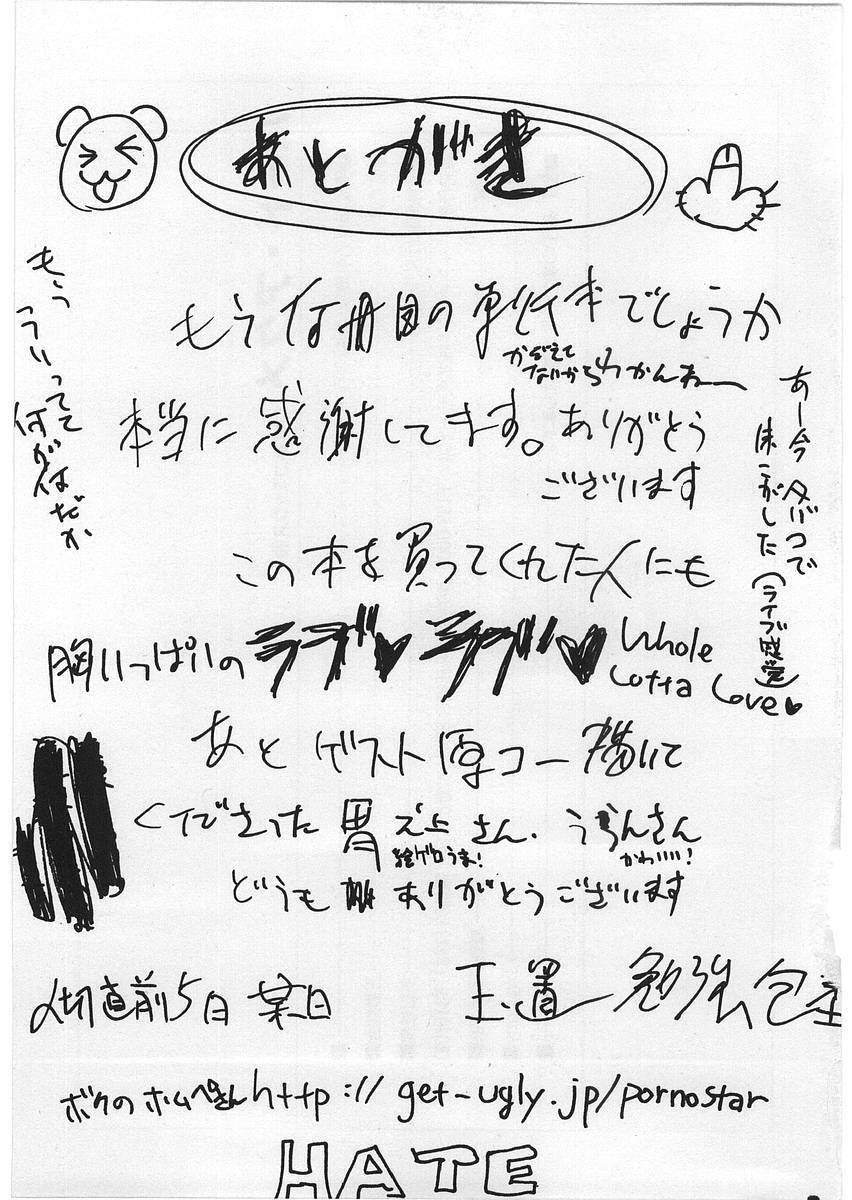 あとがき
もう何冊目の単行本でしょうか
かぞえて
ないからわかんねー
本当に感謝してます。ありがとう
ございます
この本を買ってくれた人にも
胸いっぱいのラブ♥ラブ♥ Whole
Lotta Love♥
あとゲスト原コー描いて
くださった 胃之上さん. うらんさん
絵ゲロうま!
かわいい!
どうも ありがとうございます
〆切直前5日 某日
玉置勉強
ボクのホムペさん http://get-ugly.jp/pornostar
HATE
もう
こういってて
何が何だか
あー今タバコで
床こがした(ライブ感覚)